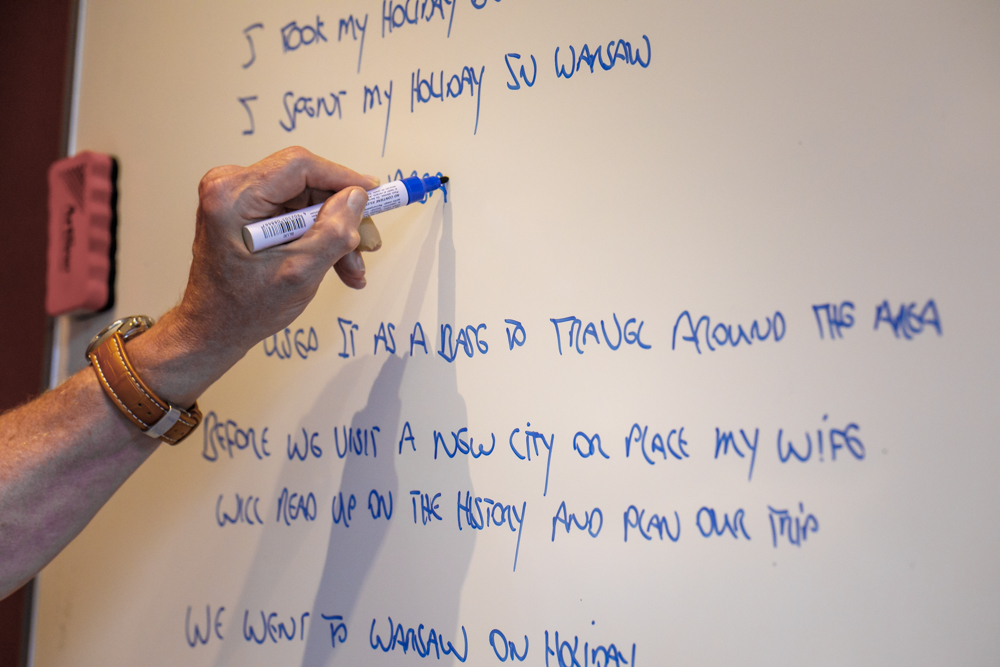 I TOOK MY HOLIDAY
I SPENT MY HOLIDAY IN WARSAW
USED IT AS A BASE TO TRAVEL AROUND THE AREA
BEFORE WE VISIT A NEW CITY OR PLACE MY WIFE
WILL READ UP ON THE HISTORY AND PLAN OUR TRIP
WE WENT TO WARSAW ON HOLIDAY